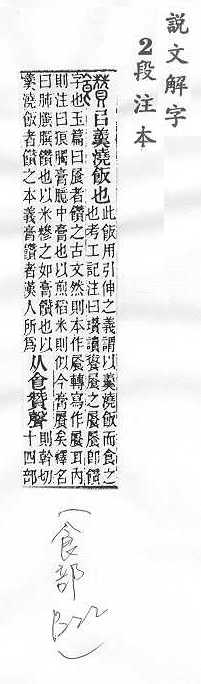 說文解字
2段注本
見㠯羹澆飯也
此飯用引伸之義謂以羹澆飯而食之
也考工記注曰瓚讀饗之卽饡
字也玉篇曰者饡之古文然則本作轉寫作耳內
則注曰狼臅膏臆中膏也以煎稻米則似今膏矣釋名
曰肺䐿䐿饡也以米糝之如膏饡也以
羹澆飯者饡之本義膏饡者漢人所爲
从食贊聲
則榦切
十四部
(食部
B22)